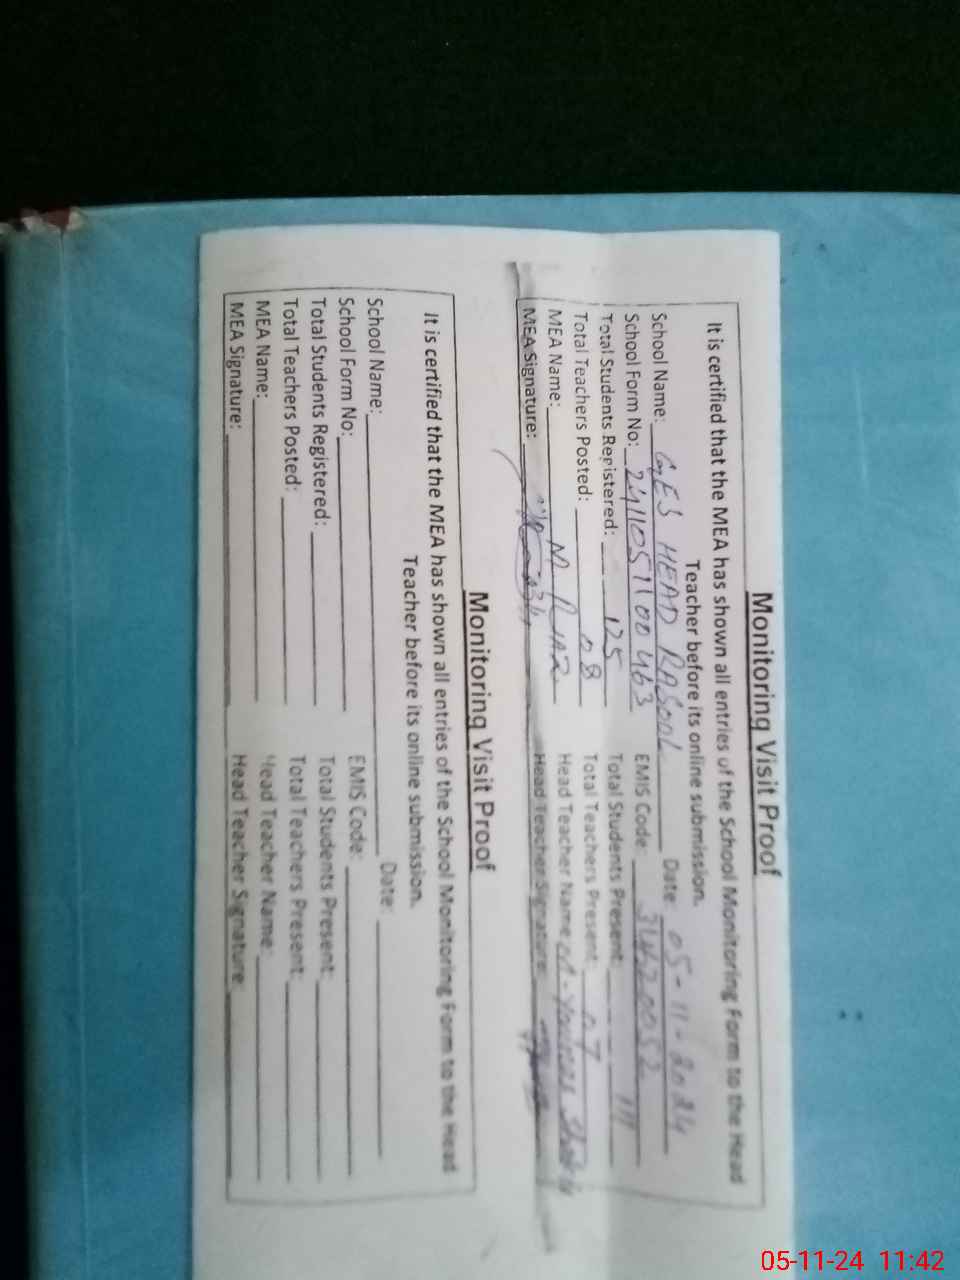 Monitoring Visit Proof
It is certified that the MEA has shown all entries of the School Monitoring Form to the Head
Teacher before its online submission.
School Name: GES HEAD RASOOL Date: 05-11-2024
School Form No: 2411051100463 EMIS Code: 34620052
Total Students Registered: 125 Total Students Present: 111
Total Teachers Posted: 08 Total Teachers Present: 07
MEA Name: M RIAZ Head Teacher Name:
MEA Signature: Head Teacher Signature:
Monitoring Visit Proof
It is certified that the MEA has shown all entries of the School Monitoring Form to the Head
Teacher before its online submission.
School Name: Date:
School Form No: EMIS Code:
Total Students Registered: Total Students Present:
Total Teachers Posted: Total Teachers Present:
MEA Name: Head Teacher Name:
MEA Signature: Head Teacher Signature:
05-11-24 11:42